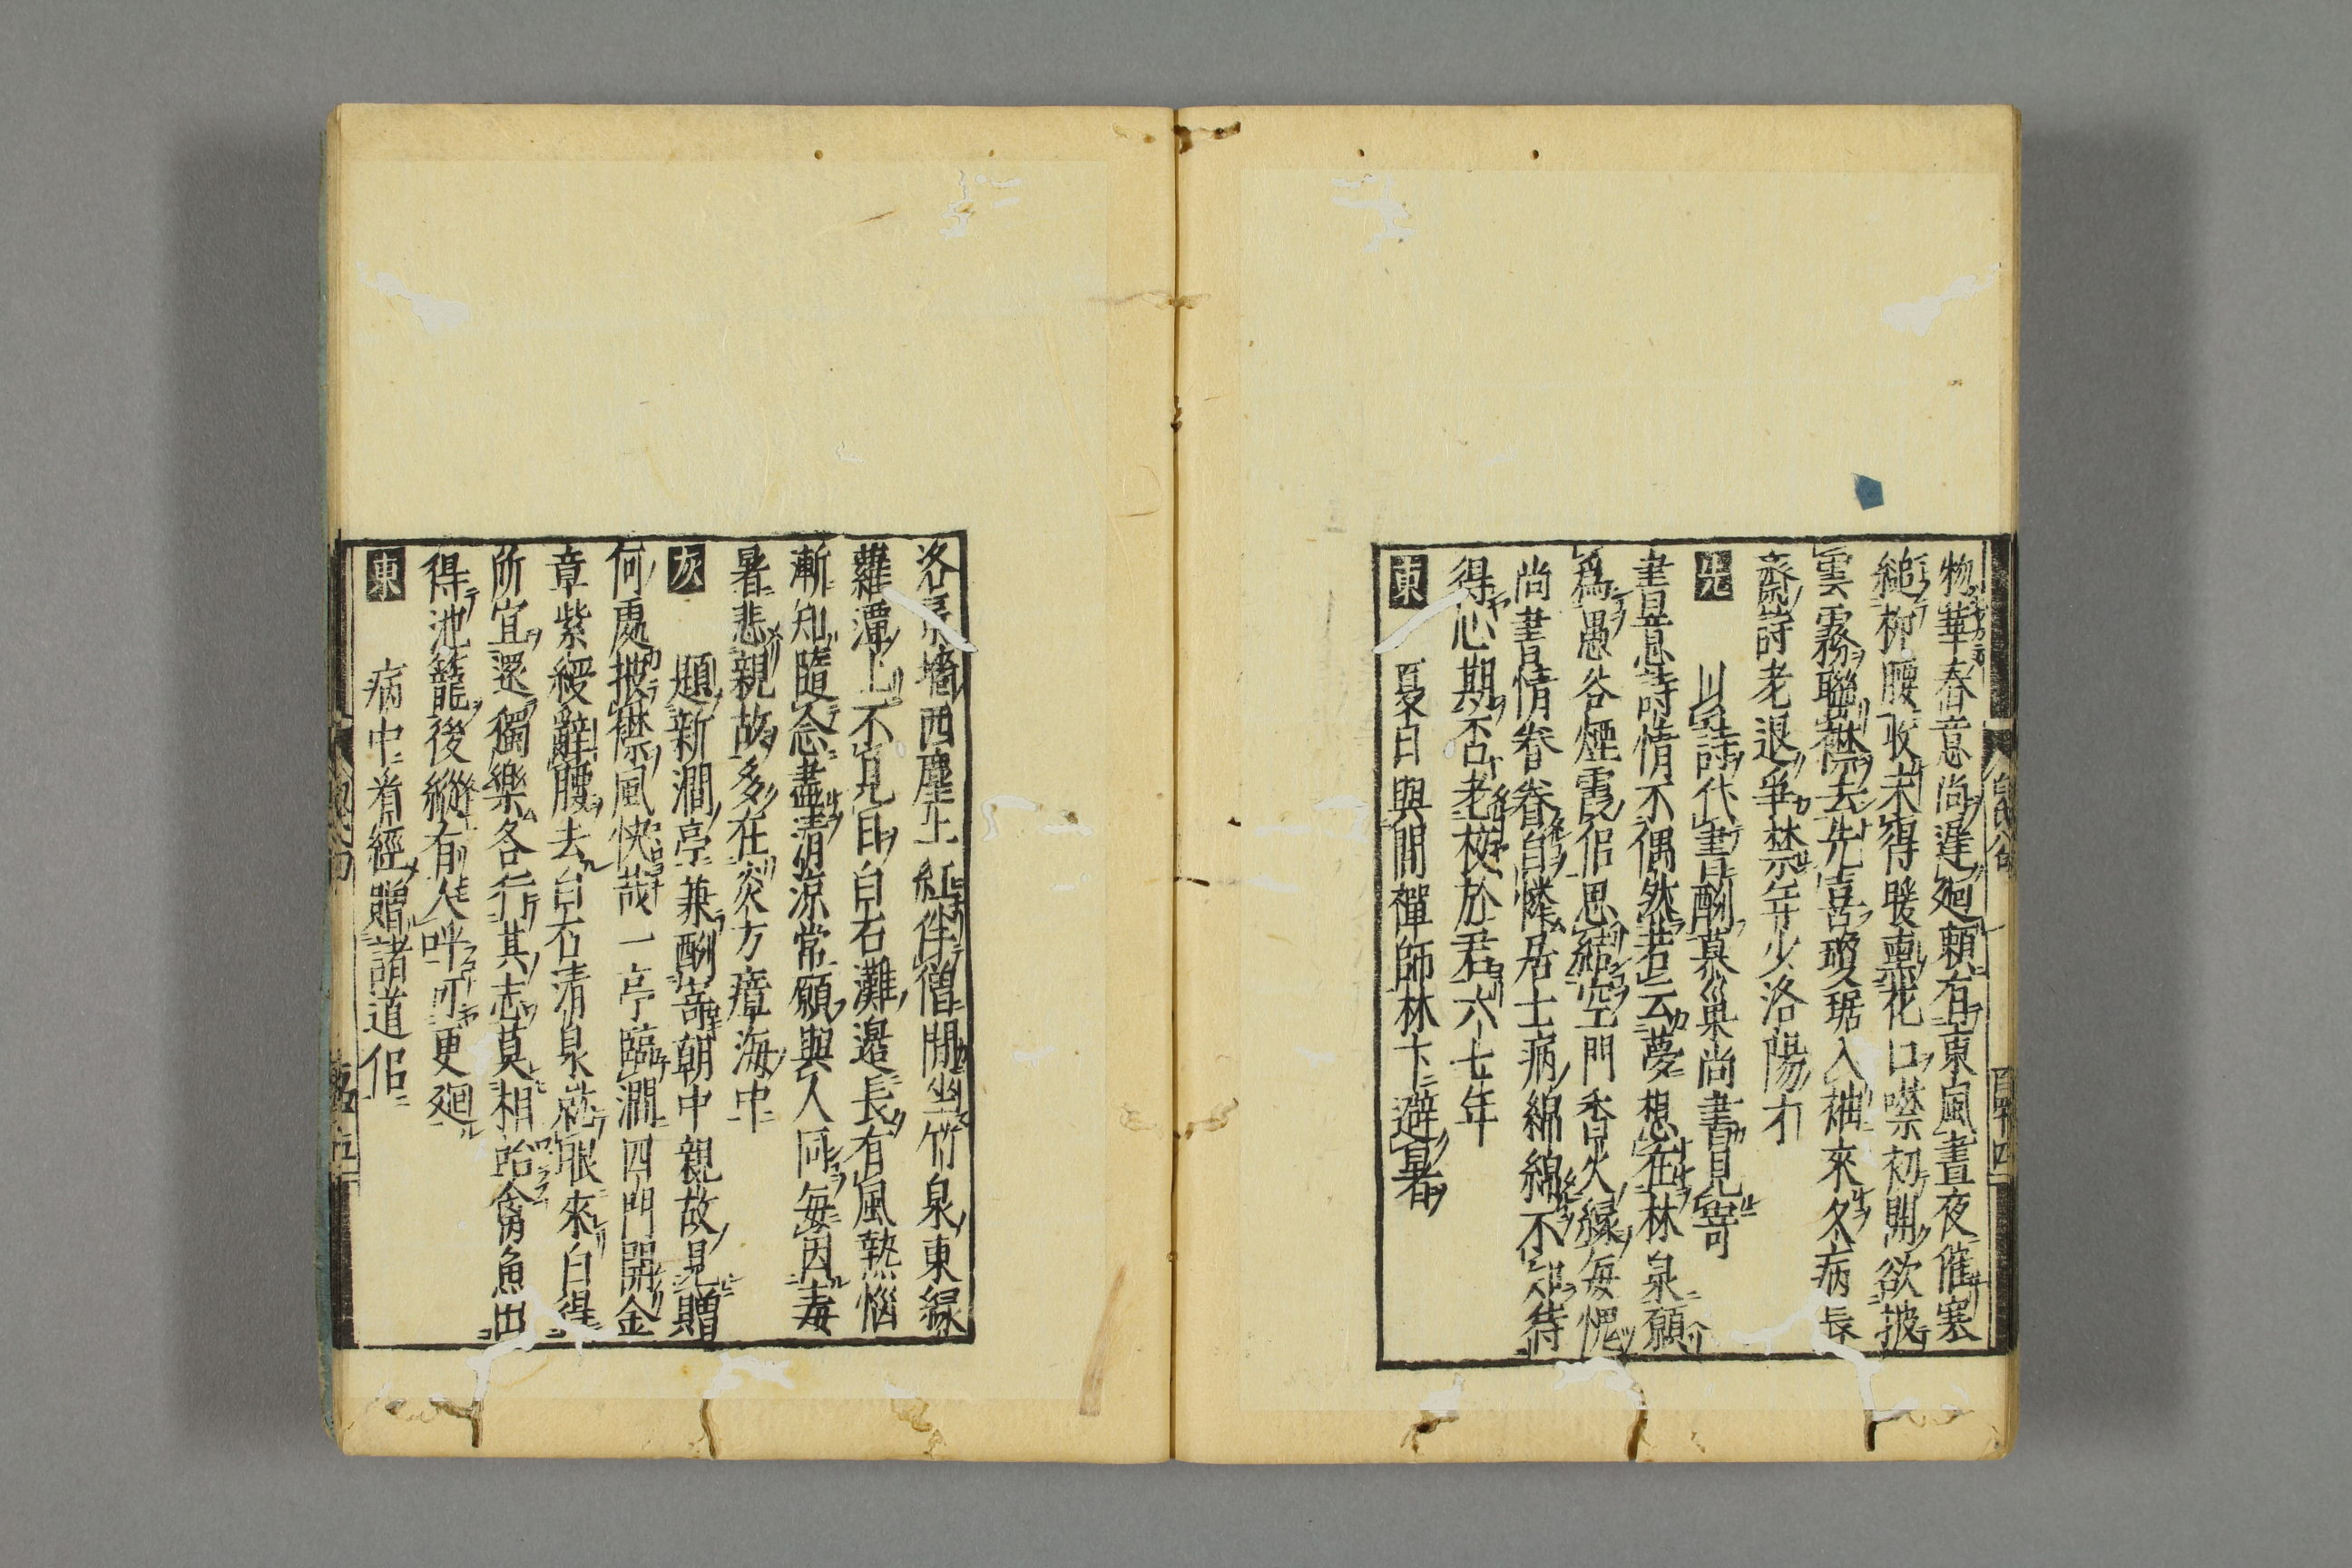 物華春意尚遲廻頼有東風晝夜催寒
縋柳腰收未得暖熏花口噤初開欲披
雲霧聯襟去先喜瓊琚入袖來久病長
齋詩老退爭禁年少洛陽才
先 以詩代書酬慕巢尚書見寄
書意詩情不偶然苦云夢想在林泉願
爲愚谷煙霞侶思結空門香火緣每愧
尚書情眷眷自憐居士病綿綿不知待
得心期否老校於君六七年
東 夏日與閒禪師林下避暑
洛景墻西塵土紅伴僧閒坐竹泉東綠
蘿潭上不見日白石灘邊長有風熱惱
漸知隨念盡清涼常願與人同每因毒
暑悲親故多在炎方瘴海中
灰 題新澗亭兼酬寄朝中親故見贈
何處披襟風快哉一亭臨澗四門開金
章紫綬辭腰去白石清泉就眼來自得
所宜還獨樂各行其志莫相咍禽魚出
得池籠後縱有人呼可更廻
東 病中看經贈諸道侶